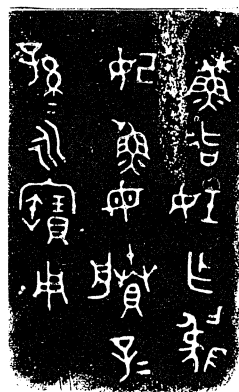 穌冶妊乍虢
妃魚母賸子〓
孫〓永寶用